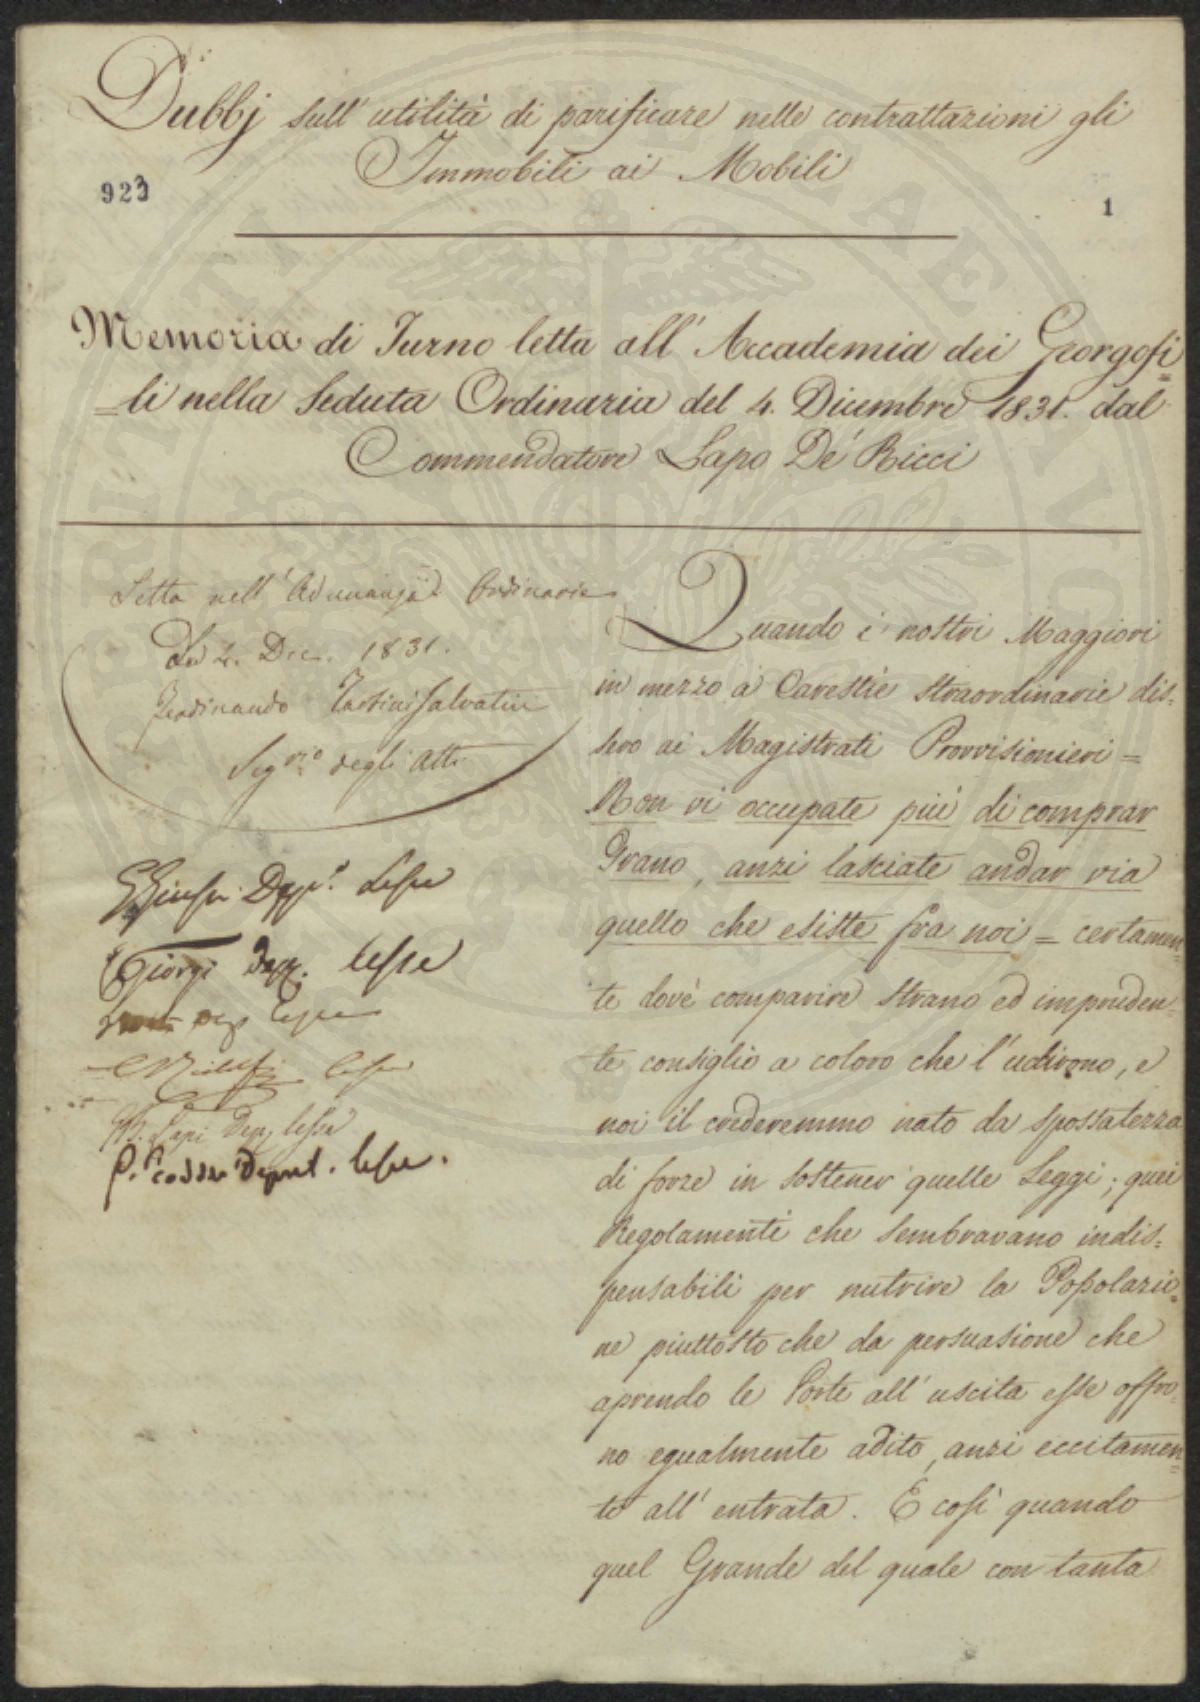 Dubbj sull' utilità di parificare nelle contrattazioni gli
Immobili ai Mobili
923
1
Memoria di Turno letta all' Accademia dei Georgofi=
=li nella Seduta Ordinaria del 4. Dicembre 1831. dal
Commendatore Lapo De' Ricci
Letta nell' Adunanza Ordinaria
Dec. 1831.
Ferdinando Tartini Salvatici
Seg.rio degli Atti
Dep. Lesse
Giorgi Dep. lesse
Dep lesse
lesse
Lapi Dep. lesse
Deput. lesse.
Quando i nostri Maggiori
in mezzo a' Carestie straordinarie dis=
sero ai Magistrati Provvisionieri =
Non vi occupate più di comprar
Grano, anzi lasciate andar via
quello che esiste fra noi = certamen=
te dovè comparire strano ed impruden=
te consiglio a coloro che l' udirono, e
noi il crederemmo nato da spossatezza
di forze in sostener quelle Leggi; quei
Regolamenti che sembravano indis=
pensabili per nutrire la Popolazio=
ne piuttosto che da persuasione che
aprendo le Porte all' uscita esse offro=
no egualmente adito, anzi eccitamen=
to all' entrata. E così quando
quel Grande del quale con tanta